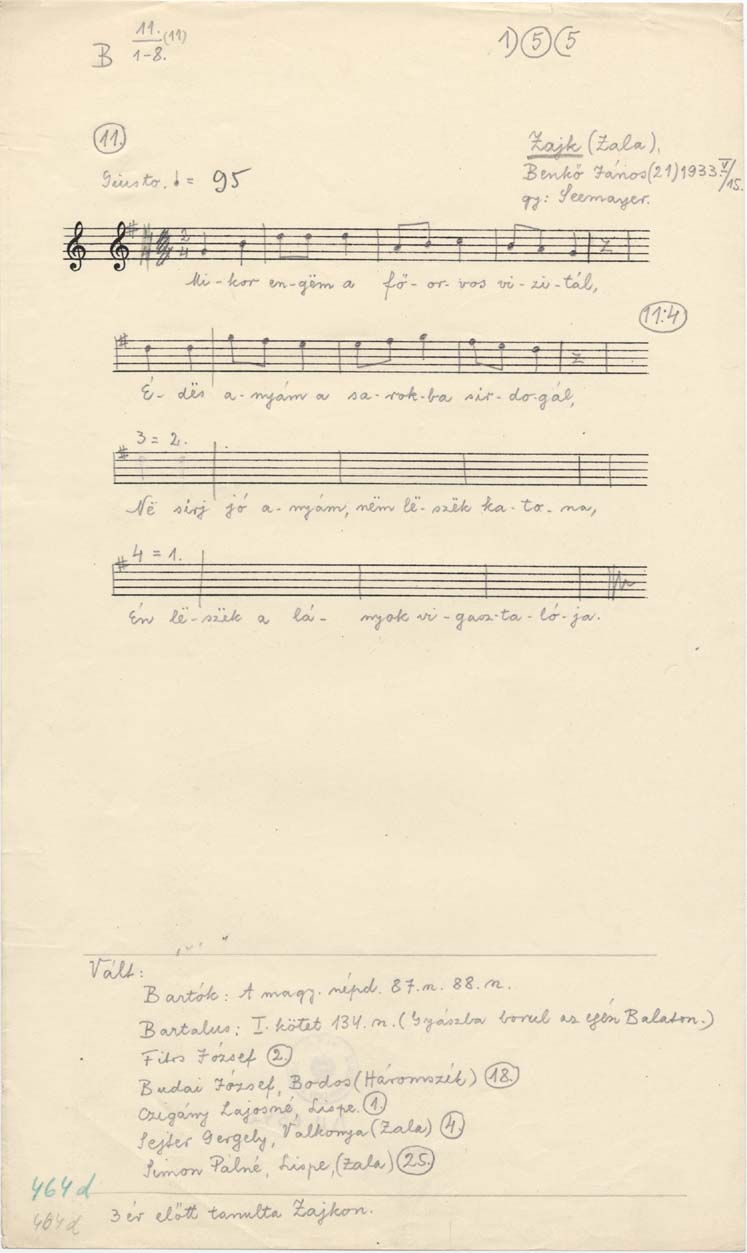 B 11. (11)
1-8.
1) 5 (5
11.
Zajk (Zala),
Benkő János (21) 1933. V/15.
gy: Seemayer.
Giusto. ♩ = 95
2
4
Mi-kor en-gëm a fő-or-vos vi-zi-tál,
11:4
É-dës a-nyám a sa-rok-ba sir-do-gál,
3 = 2.
Në sirj jó a-nyám, nëm lë-szëk ka-to-na,
4 = 1.
Én lë-szëk a lá-nyok vi-gasz-ta-ló-ja.
Vált:
Bartók: A magy. népd. 87. n. 88. n.
Bartalus: I. kötet 134. n. (Gyászba borul az egén Balaton.)
József 2.
Budai József, Bodos (Háromszék) 18.
Czigány Lajosné, Lispe. 1.
Sejter Gergely, Valkonya (Zala) 4.
Simon Pálné, Lispe, (Zala) 25.
464d
464d
3 év előtt tanulta Zajkon.